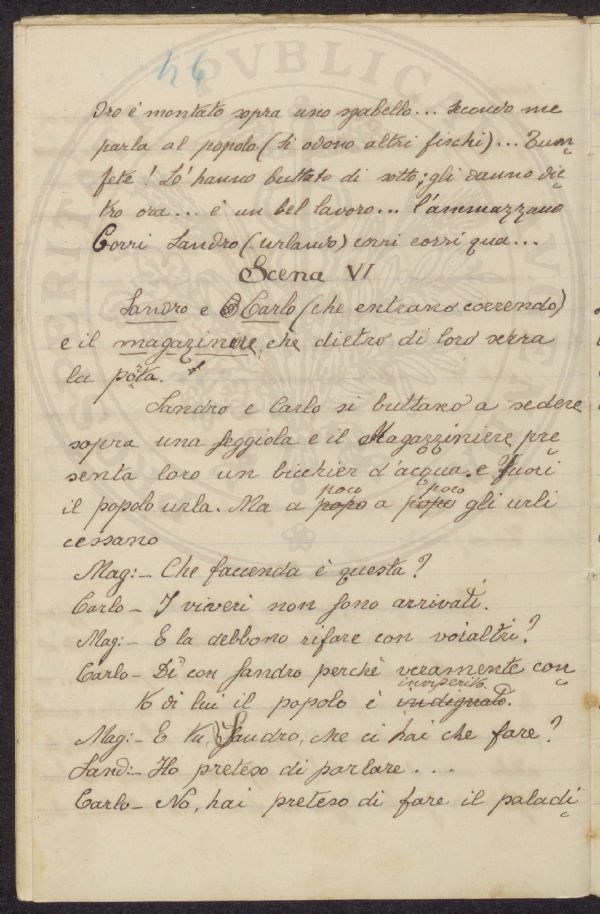 44
dro è montato sopra uno sgabello... secondo me
parla al popolo (si odono altri fischi)... Tum-
fete! Lo hanno buttato di sotto; gli danno die-
tro ora... è un bel lavoro... l'ammazzano
Corri Sandro (urlando) corri corri qua...
Scena VI
Sandro e Carlo (che entrano correndo)
e il magaziniere, che dietro di loro serra
la porta.
Sandro e Carlo si buttano a sedere
sopra una seggiola e il Magazziniere pre
senta loro un bicchier d'acqua. e Fuori
poco poco
il popolo urla. Ma a popo a popo gli urli
cessano
Mag:- Che faccenda è questa?
Carlo - I viveri non sono arrivati.
Mag:- E la debbono rifare con voialtri?
Carlo - Di' con Sandro perchè veramente con
inviperito.
tro di lui il popolo è indignato.
Mag:- E tu, Sandro, che ci hai che fare?
Sand:- Ho preteso di parlare...
Carlo - No, hai preteso di fare il paladi